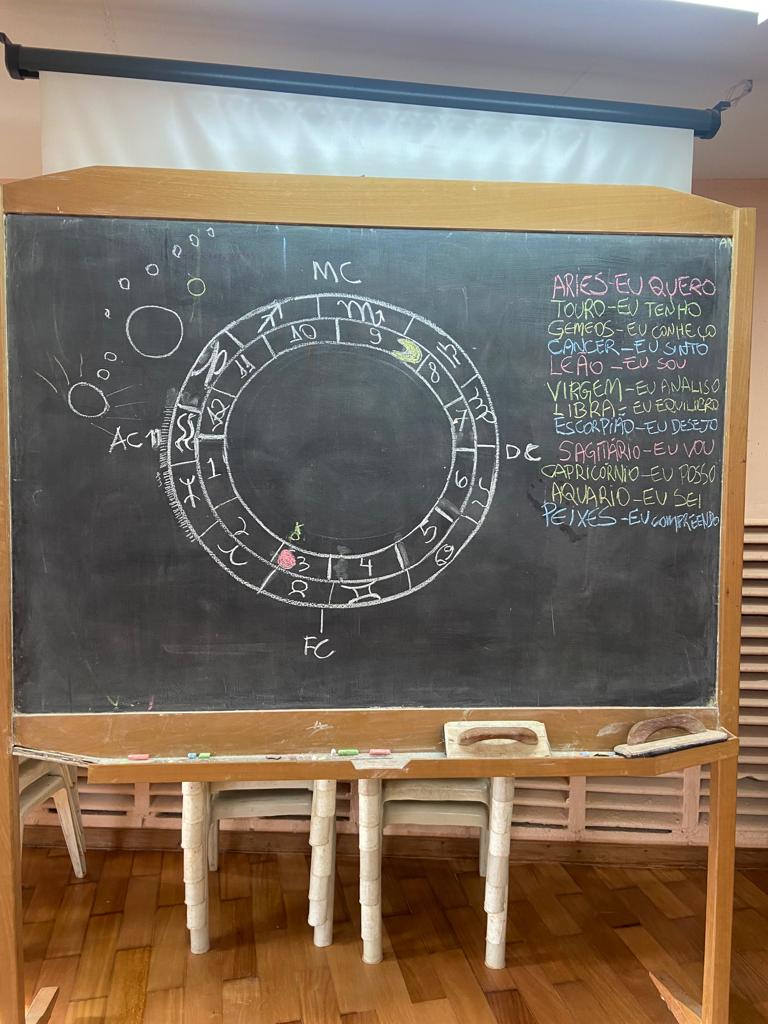 MC
10
9
11
8
12
7
AC
DC
1
6
2
5
3
4
FC
ARIES-EU QUERO
TOURO-EU TENHO
GEMEOS-EU CONHEÇO
CANCER-EU SINTO
LEÃO-EU SOU
VIRGEM-EU ANALISO
LIBRA-EU EQUILIBRO
ESCORPIÃO-EU DESEJO
SAGITÁRIO-EU VOU
CAPRICÓRNIO-EU POSSO
AQUARIO-EU SEI
PEIXES-EU COMPREENDO